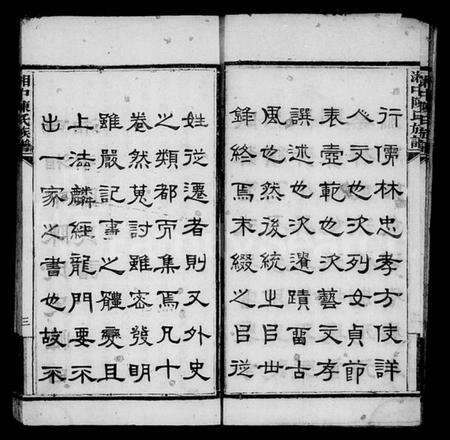 湘中陳氏族譜
行儒林忠孝方伎詳
心文也次列女貞節
表壼範也次藝文存
譔述也次遺蹟留古
風也然後統之吕世
終焉末綴之吕從
姓從遷者則又外史
之類都而集焉凡十
卷然蒐討雖密發明
雖嚴記事之體變且
上法麟經龍門要不
出一家之書也故不
湘中陳氏族譜
三